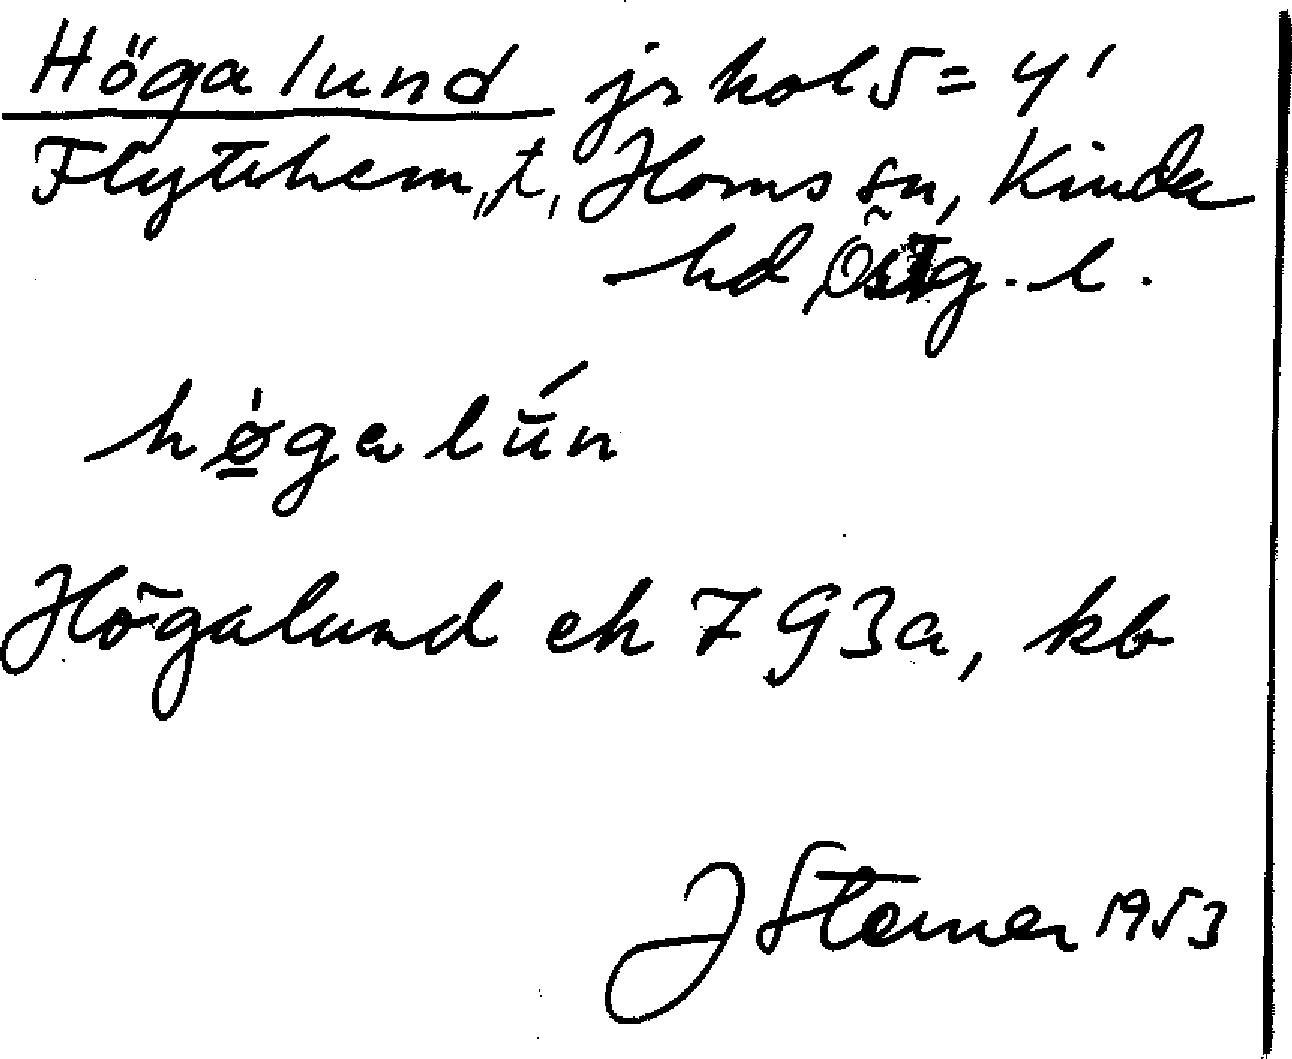 Högalund jr kol 5 = 4'
Flytthem, t, Horns sn, Kinda
hd, Östg. l.
hǿ̱galún
Högalund ek 7 G3a, kb
J Sterner 1953